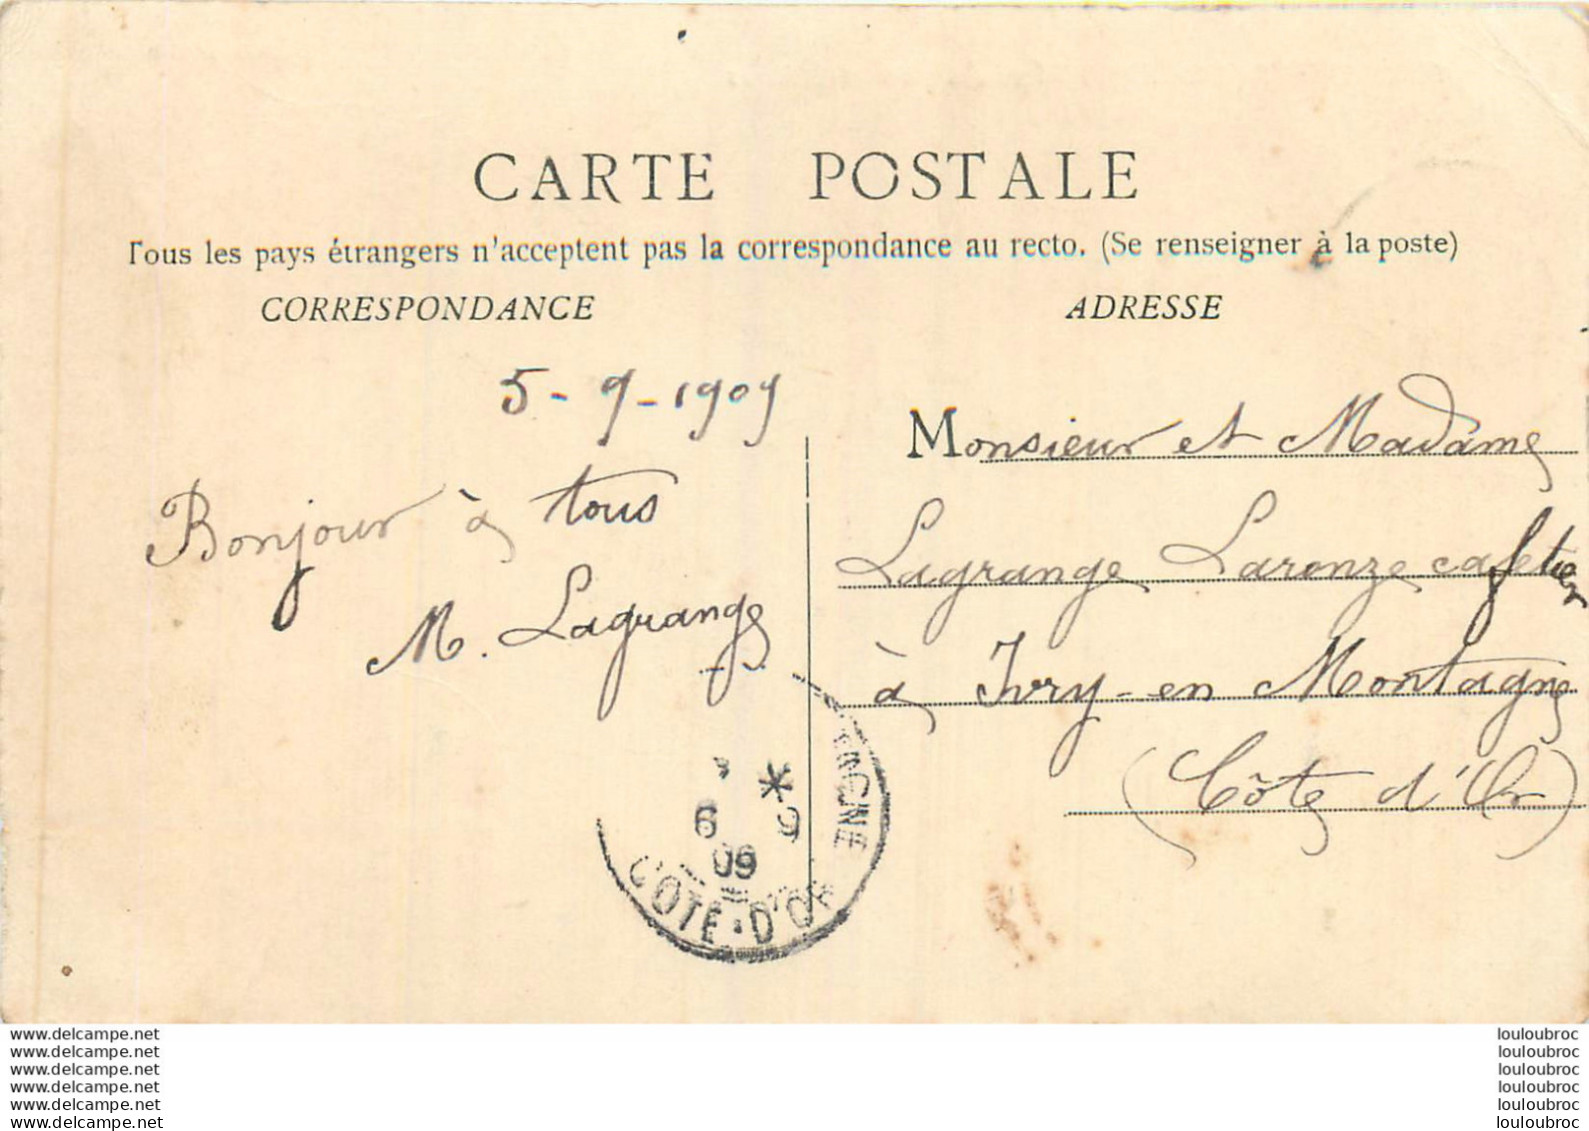 CARTE POSTALE
Tous les pays étrangers n'acceptent pas la correspondance au recto. (Se renseigner à la poste)
CORRESPONDANCE
5-9-1909
Bonjour à tous
M. Lagrange
ADRESSE
Monsieur et Madame
Lagrange Laronze cafetier
à Ivry-en Montagne
(Côte d'Or)
6 9
09
COTE-D'OR
www.delcampe.net
www.delcampe.net
www.delcampe.net
www.delcampe.net
www.delcampe.net
www.delcampe.net
louloubroc
louloubroc
louloubroc
louloubroc
louloubroc
louloubroc